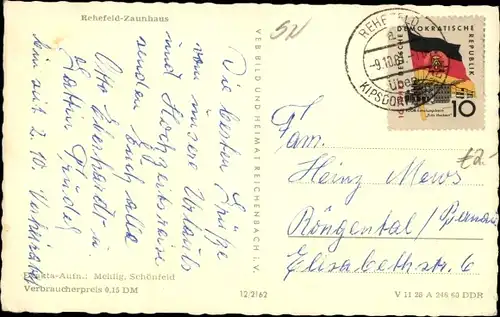 Rehefeld-Zaunhaus
Die besten Grüße
von unsere Urlaubs
und Hochzeitsreise
senden Euch alle
Otto Eberhardt u.
Gattin Gündel
seit 2.10.
Effekta-Aufn.: Mehlig, Schönfeld
Verbraucherpreis 0,15 DM
12/2162
VEB BILD UND HEIMAT REICHENBACH I. V.
REHEFELD
-9.10.6
über
KIPSDORF
DEUTSCHE
DEMOKRATISCHE
REPUBLIK
10
Fam.
Heinz Mews
Röngental/Bernau
Elisabethstr. 6
V 11 28 A 246 63 DDR